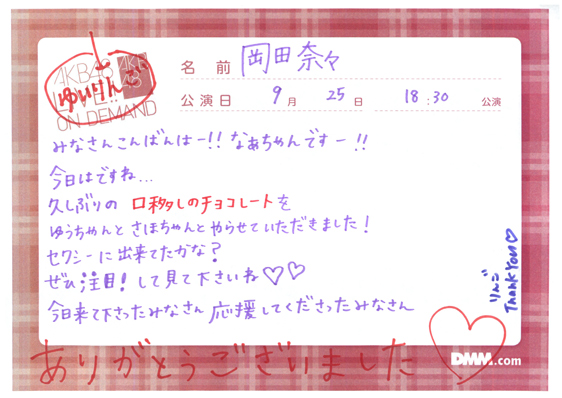 AKB48
LIVE!!
ON DEMAND
ゆいりんご
名 前 岡田奈々
公演日 9月 25日 18:30 公演
みなさんこんばんはー!! なぁちゃんですー!!
今日はですね...
久しぶりの 口移しのチョコレートを
ゆうちゃんと さほちゃんと やらせていただきました!
セクシーに出来てたかな?
ぜひ注目! して見て下さいね♡♡
今日来て下さったみなさん 応援してくださったみなさん
ありがとうございました
りんご
Thank You♡
DMM.com